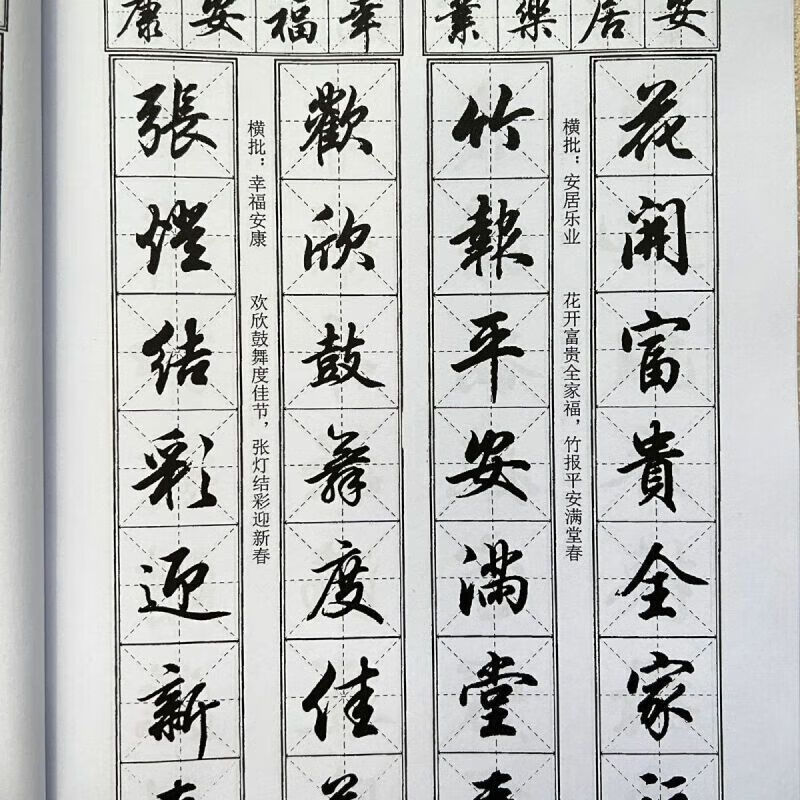 安居樂業
花開富貴全家
横批：安居乐业
花开富贵全家福，竹报平安满堂春
竹報平安滿堂
幸福安康
歡欣鼓舞度佳
横批：幸福安康
欢欣鼓舞度佳节，张灯结彩迎新春
張燈結彩迎新